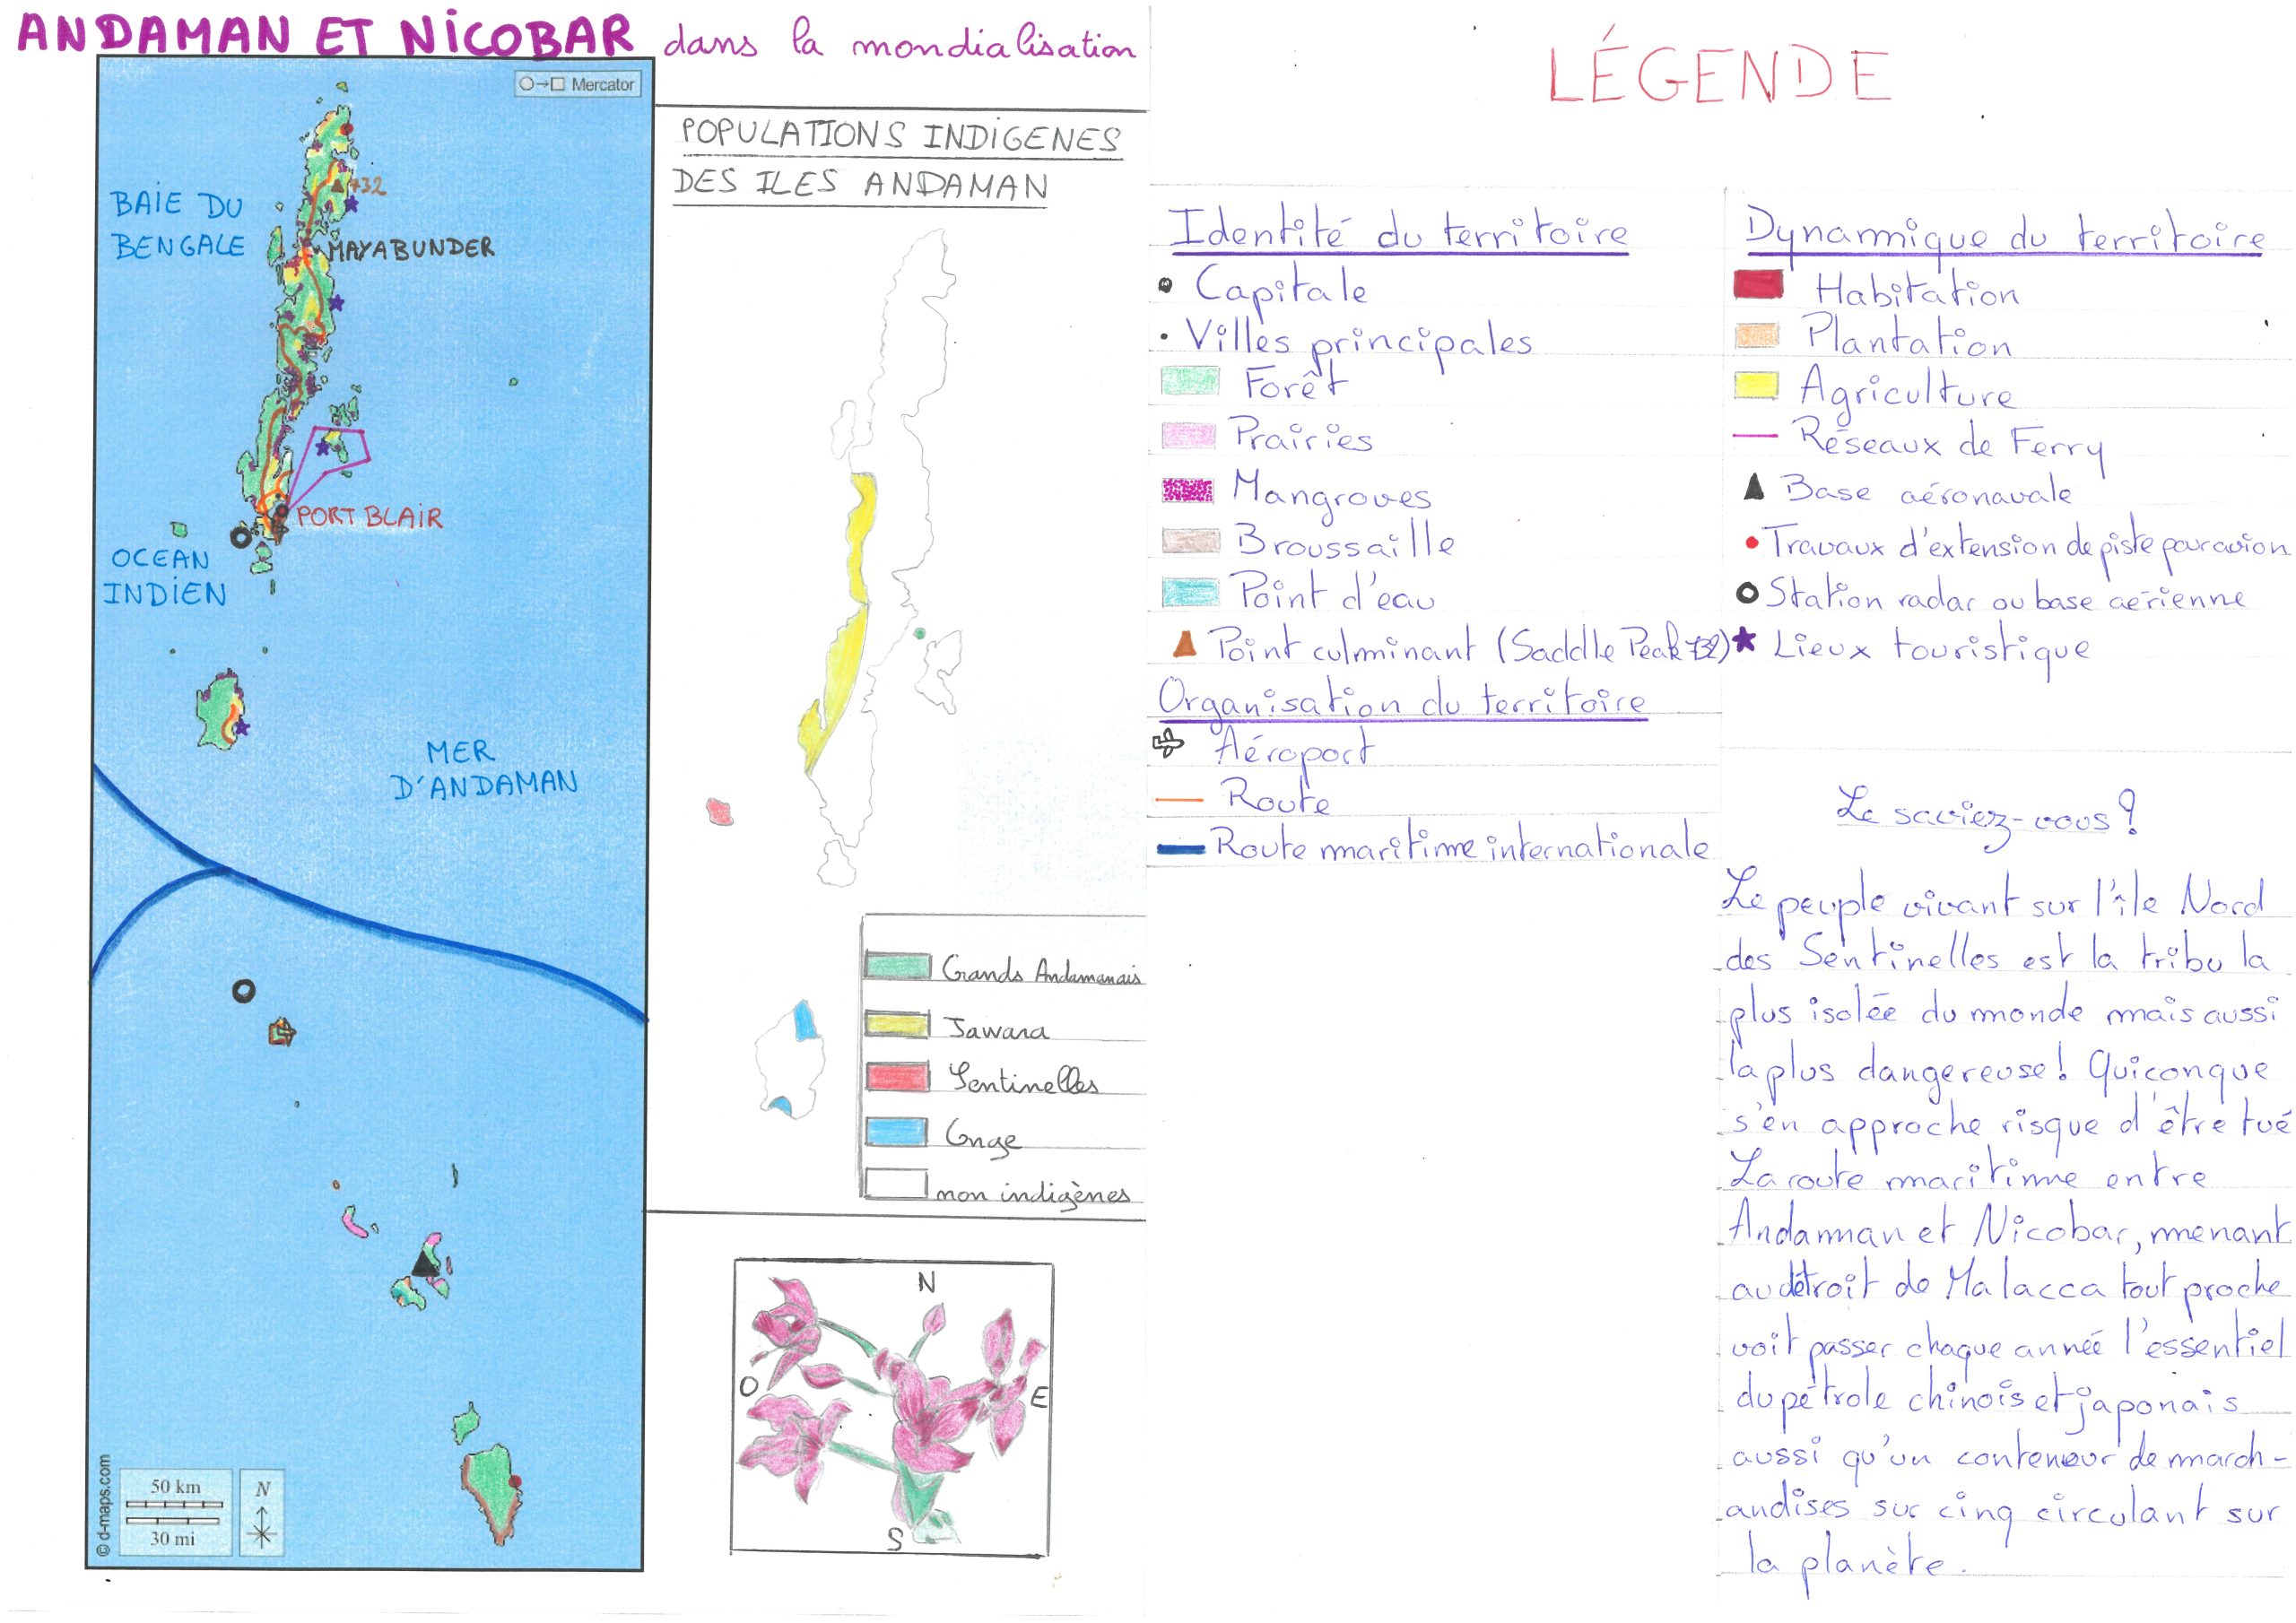 ANDAMAN ET NICOBAR dans la mondialisation
Mercator
BAIE DU
BENGALE
732
MAYABUNDER
PORT BLAIR
OCEAN
INDIEN
MER
D'ANDAMAN
© d-maps.com
50 km
30 mi
N
POPULATIONS INDIGENES
DES ILES ANDAMAN
Grands Andamanais
Jawara
Sentinelles
Onge
non indigènes
N
O
E
S
LÉGENDE
Identité du territoire
Capitale
Villes principales
Forêt
Prairies
Mangroves
Broussaille
Point d'eau
Point culminant (Saddle Peak 732)
Organisation du territoire
Aéroport
Route
Route maritime internationale
Dynamique du territoire
Habitation
Plantation
Agriculture
Réseaux de Ferry
Base aéronavale
Travaux d'extension de piste pour avion
Station radar ou base aérienne
Lieux touristique
Le saviez-vous?
Le peuple vivant sur l'île Nord
des Sentinelles est la tribu la
plus isolée du monde mais aussi
la plus dangereuse! Quiconque
s'en approche risque d'être tué
La route maritime entre
Andaman et Nicobar, menant
au détroit de Malacca tout proche
voit passer chaque année l'essentiel
du pétrole chinois et japonais
aussi qu'un conteneur de march-
andises sur cinq circulant sur
la planète.